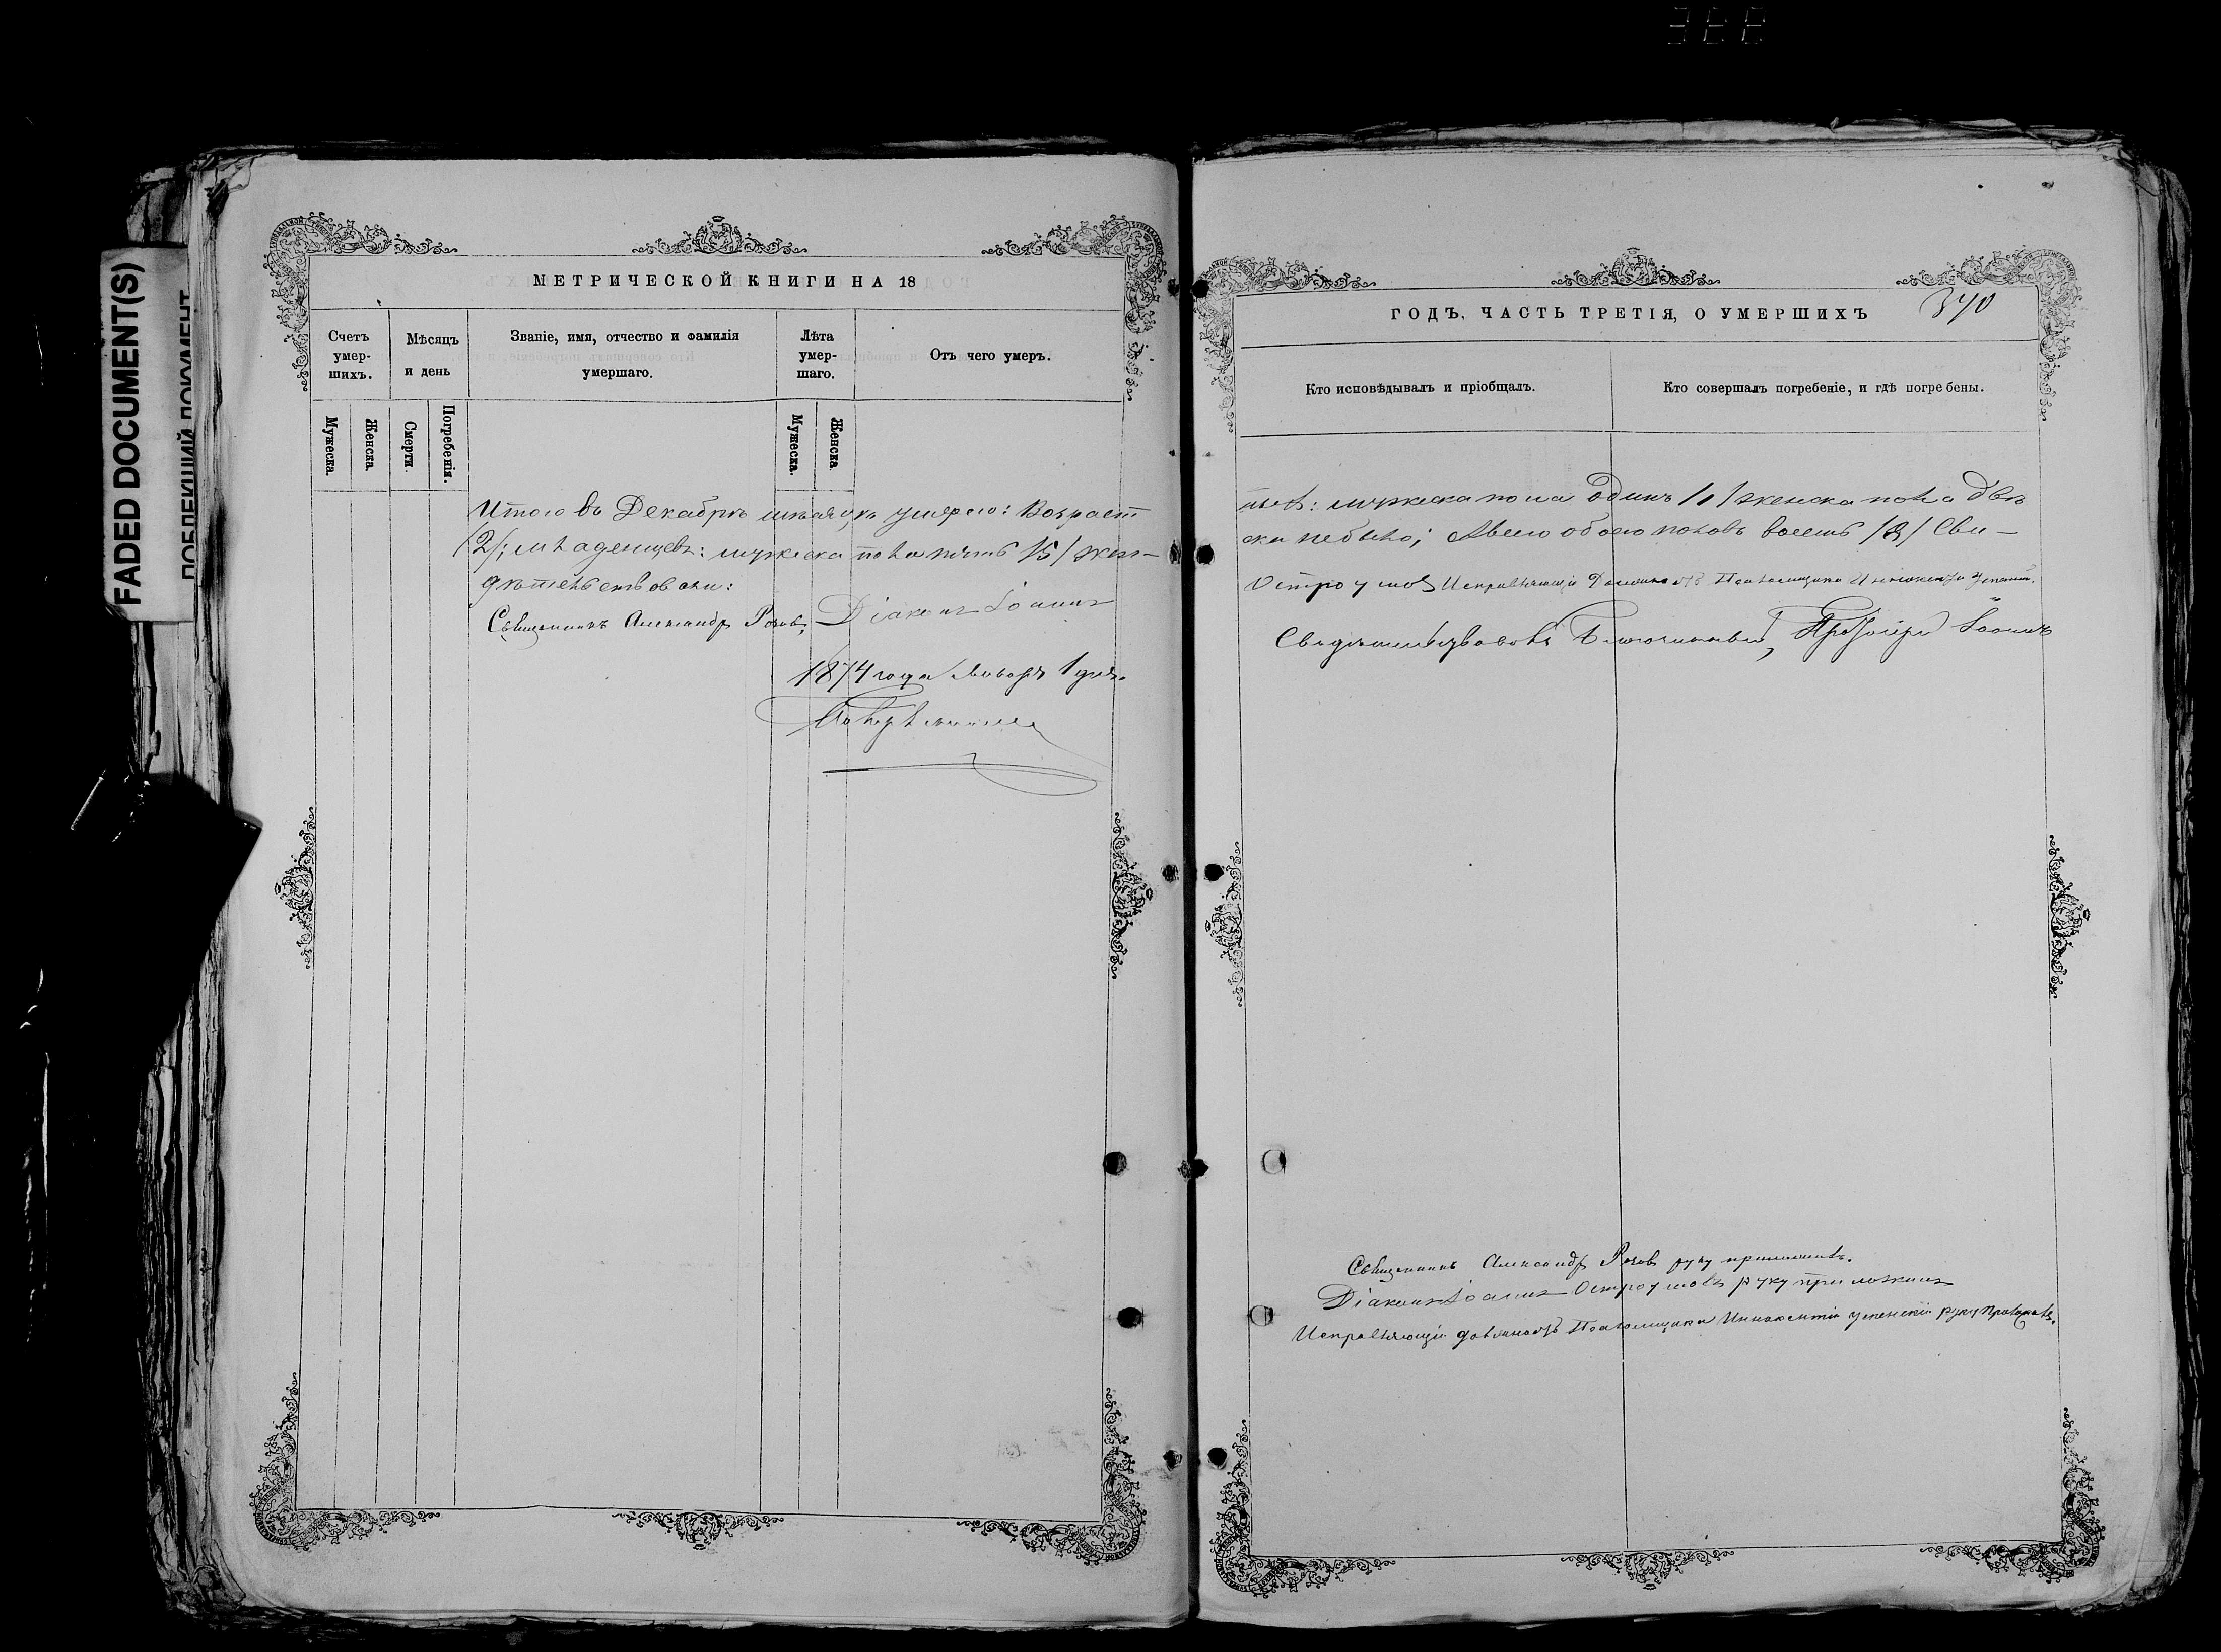 FADED DOCUMENT(S)
МЕТРИЧЕСКОЙ КНИГИ НА 18
Счетъ умер-шихъ.
Мѣсяцъ и день
Званіе, имя, отчество и фамилія умершаго.
Лѣта умер-шаго.
Отъ чего умеръ.
Мужеска.
Женска
Смерти.
Погребенія.
Мужеска.
Женска
Итого въ Декабрѣ мѣсяцѣ умерло: Возраст
/2/; младенцевъ: мужеска пола пять /5/ жен-
дѣтельствовали:
Священникъ Александръ Розовъ, Діаконъ Іоаннъ
1874 года Января 1 дня.
ГОДЪ, ЧАСТЬ ТРЕТІЯ, О УМЕРШИХЪ
370
Кто исповѣдывалъ и пріобщалъ.
Кто совершалъ погребеніе, и гдѣ погребены.
ныхъ: мужеска пола одинъ /1/ женска пола двѣ
ска небыло; Авсего обоего половъ восемь /8/ Сви-
Остроумовъ Исправляющій Должность Псаломщика Иннокентій Успенскій.
Свидѣтельствовалъ Благочинный, Протоіерей Іоаннъ
Священникъ Александръ Розовъ руку приложилъ.
Діаконъ Іоаннъ Остроумовъ руку приложилъ
Исправляющій должность Псаломщика Иннокентій Успенскій руку приложилъ.